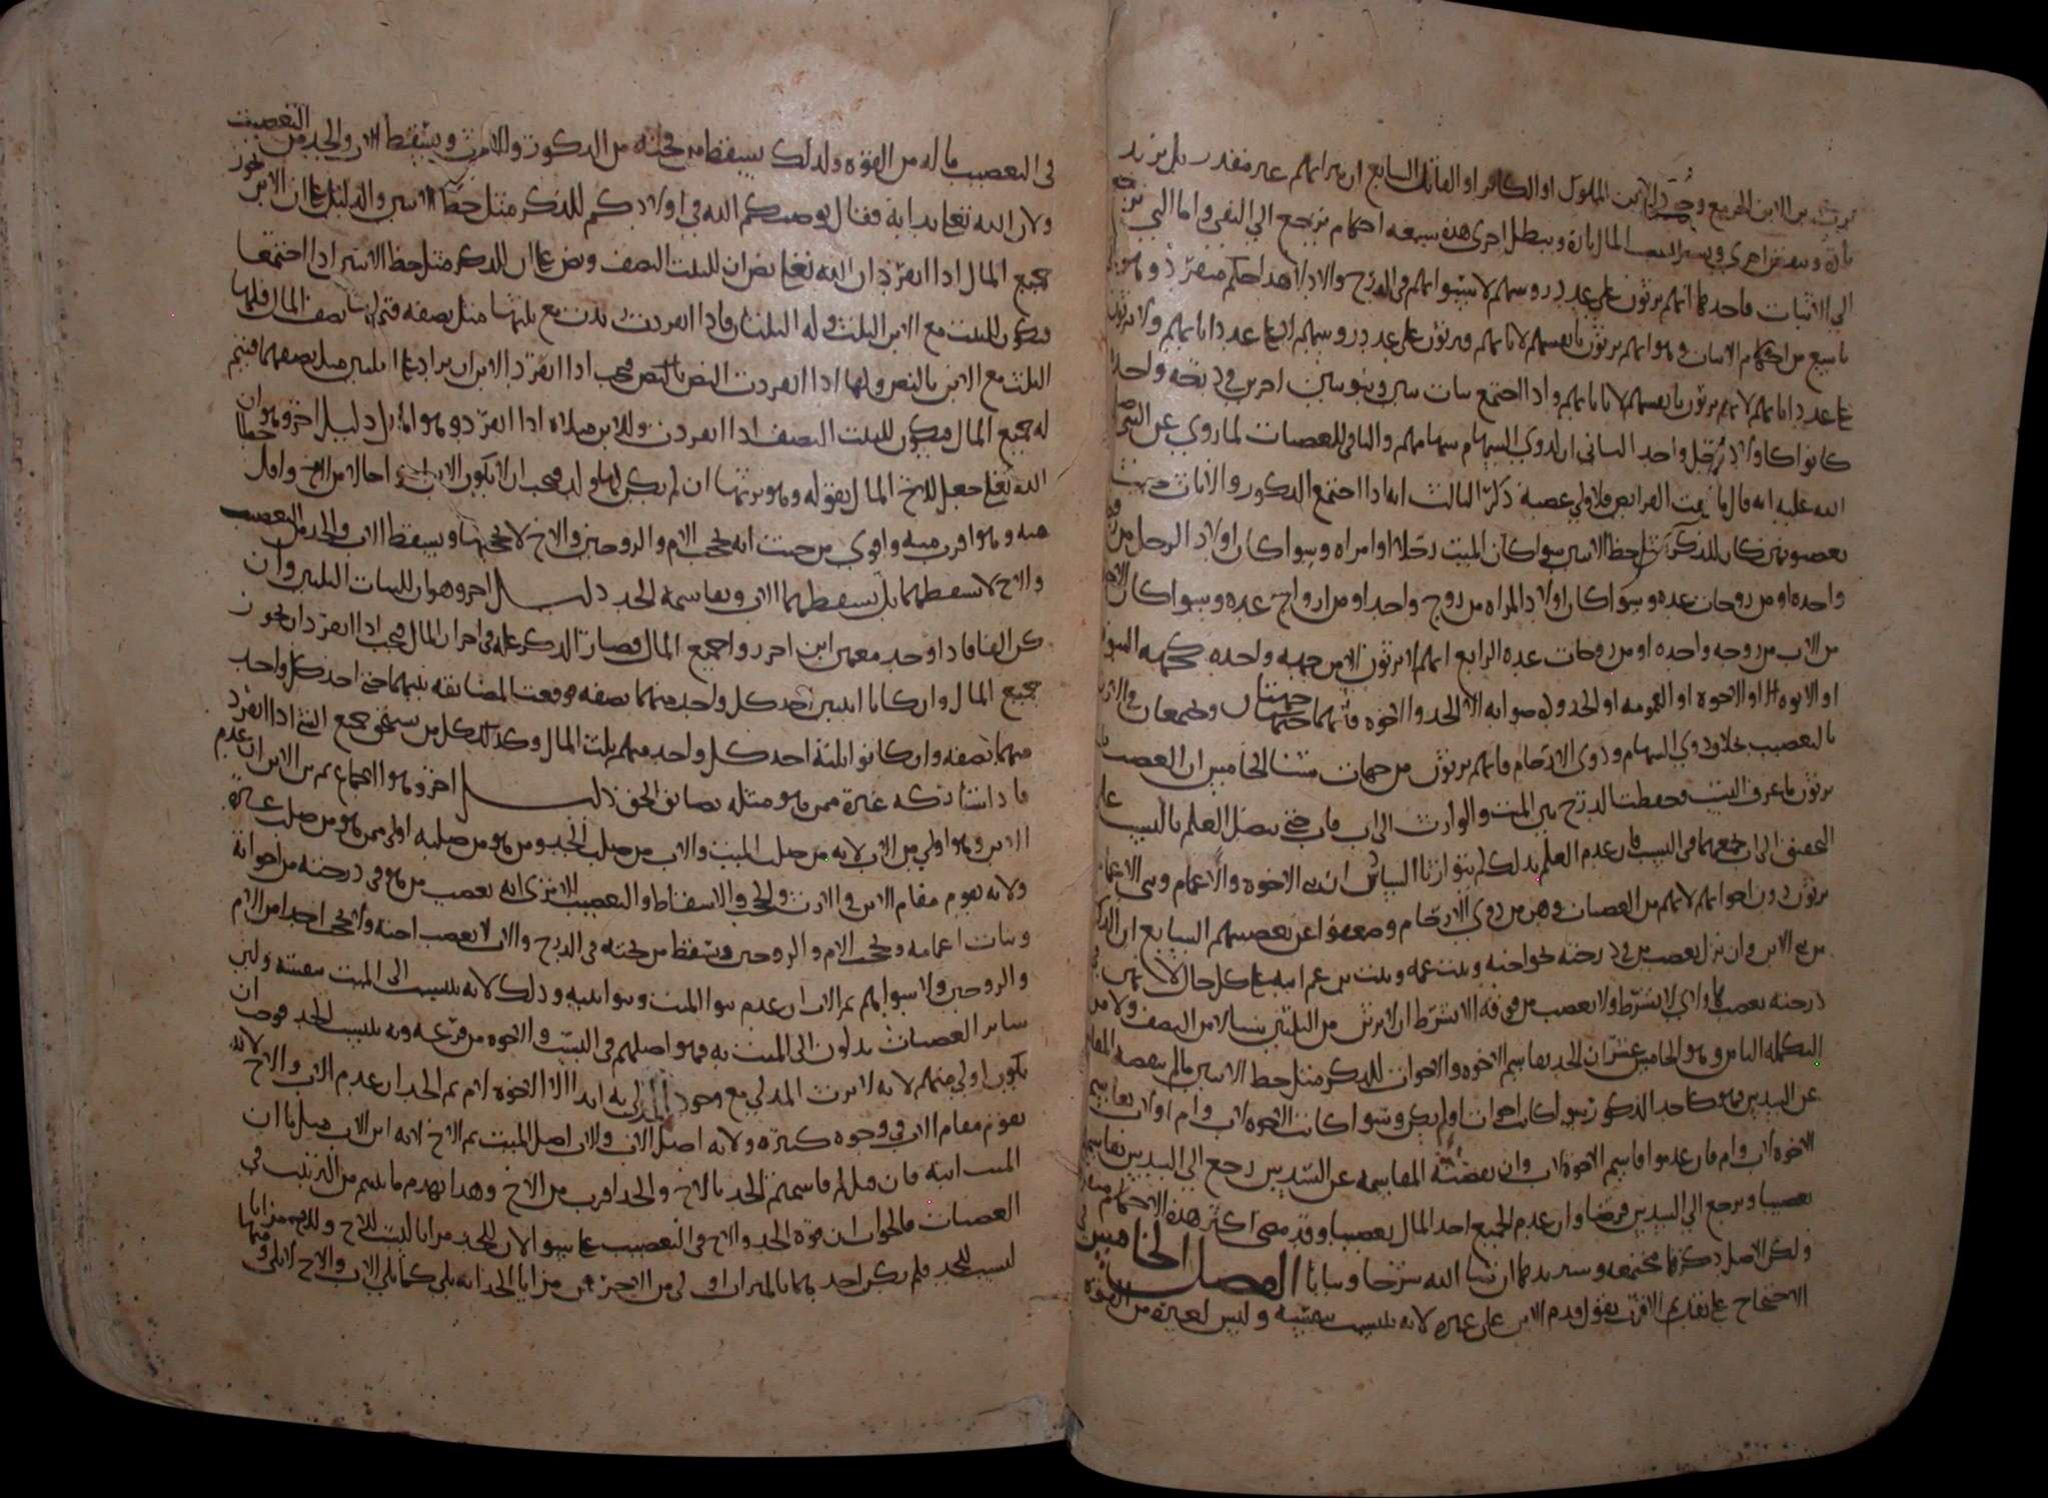 يرث بن الابن الحر مع وجود الابن المملوك او الكافر او القاتل السابع ان ميراثهم غير مقدر بل يزيد
تارة وينقص اخرى المال تارة ويبطل اخرى هذه سبعة احكام يرجع الى النفي واما التي ترجع
الى الاثبات فاحدها انهم يرثون على عدد روسهم لاستوائهم في الدرج والادلا هذا حكم منفرد وهو
يرثون بانفسهم لا بابائهم ويرثون على عدد روسهم لا على عدد ابائهم ولا يرثون
على عدد ابائهم لانهم يرثون بانفسهم لا بابائهم واذا اجتمع بنات بنين وبنو بنين اخرين في درجة واحدة
كانوا كاولاد رجل واحد الثاني ان لذوي السهام سهامهم والباقي للعصبات لما روي عن النبي صلى
الله عليه انه قال ما بقت الفرايض فلاولي عصبة ذكر الثالث انه اذا اجتمع الذكور والاناث
يعصبونهن كان للذكر مثل حظ الانثيين سوا كان الميت رجلا او امراه وسوا كان اولاد الرجل من زوجة
واحده او من زوجات عده وسوا كان اولاد المراه من زوج واحد او من ازواج عده وسوا كان الاخوة
من الاب من زوجه واحده او من زوجات عده الرابع انهم لا يرثون الا من جهه واحده كجهه البنوة
او الابوه او الاخوه او العمومه او الجدوله صوابه الا الجد والاخوه فانهما جهتان ويجمعان في الارث
بالتعصيب بخلاف ذوي السهام وذوي الارحام فانهم يرثون من جهات شتى الخامس ان العصبة
يرثون ما عرف النسب وحفظت الدرج بين الميت والوارث الى اب فاب حتى يتصل العلم بالنسب على
التحقيق الى ان جمعهما في النسب فان عدم العلم بذلك لم يتوارثا السادس ان بني الاخوه والاعمام وبني الاعمام
يرثون دون اخواتهم لانهم من العصبات وهن من ذوي الارحام وضعفوا عن تعصيبهم السابع ان الذكر
من بني الابن وان نزل يعصب من في درجته نحو اخته وبنت عمه وبنت بن عم ابيه على كل حال
درجته يعصب ولا يعصب من فوقه الا بشرط ان لا يرثن من الثلثين شيا لا من النصف ولا من
التكملة الثامن وهو الخامس عشر ان الجد يقاسم الاخوه والاخوات للذكر مثل حظ الانثيين ما لم ينقصه المقاسمة
عن السدس فهو كاحد الذكور سوا كان اخوات او لم يكن وسوا كانت الاخوه لاب وام او لاب يقاسم
الاخوه لاب وام فان عدموا قاسم الاخوه لاب وان نقصته المقاسمه عن السدس رجع الى السدس يقاسم
تعصيبا ويرجع الى السدس فرضا وان عدم الجميع اخذ المال تعصيبا وقد مضى اكثر هذه الاحكام
ولكن الاصل ذكرها مجتمعه وسنزيدها ان شا الله شرحا وبيانا الفصل الخامس
الاحتجاج على تقديم الاقرب يقول قدم الابن على غيره لانه ينتسب بنفسه وليس لغيره من القوة
في التعصيب ما له من القوه ولذلك يسقط من تحته من الذكور والاناث ويسقط الاب والجد من التعصيب
ولان الله تعالى بدا به فقال يوصيكم الله في اولادكم للذكر مثل حظ الانثيين والدليل على ان الابن يحوز
جميع المال اذا انفرد ان الله تعالى نص ان للبنت النصف ونص على ان للذكر مثل حظ الانثيين اذا اجتمعا
فيكون للبنت مع الابن الثلث وله الثلثان فاذا انفردت زدت مع ثلثها مثل نصفه فتم لها نصف المال فلها
الثلث مع الابن بالنص ولها اذا انفردت النصف بالنص فيجب اذا انفرد الابن ان يزاد على الثلثين مثل نصفهما فيتم
له جميع المال فيكون للبنت النصف اذا انفردت وللابن مثلاه اذا انفرد وهو المال دليل اخر وهو ان
الله تعالى جعل للاخ المال بقوله وهو يرثها ان لم يكن لها ولد فيجب ان لا يكون الابن اسوء احالا من الاخ واقل حظا
منه وهو اقرب منه واقوى من حيث انه يحجب الام والزوجين والاخ لا يحجبهما ويسقط الاب والجد من التعصيب
والاخ لا يسقطهما بل يسقطهما الاب ويقاسمه الجد دليل اخر وهو ان للبنات الثلثين وان
كن الفا فاذا وجد معهن ابن احرزوا جميع المال فصار الذكر علة في احراز المال فيجب اذا انفرد ان يحوز
جميع المال وان كانا اثنين اخذ كل واحد منهما نصفه فوقعت المضايقه بينهما حتى اخذ كل واحد
منهما نصفه وان كانوا ثلثة اخذ كل واحد منهم ثلث المال وكذلك كل من يستحق جميع الشي اذا انفرد
فاذا شاركه غيره ممن هو مثله تضايق الحق دليل اخر وهو الاجماع ثم بن الابن ان عدم
الابن وهو اولى من الاب لانه من صلب الميت والاب من صلب الجد ومن هو من صلبه اولى ممن هو من صلب غيره
ولانه يقوم مقام الابن في الارث والحجب والاسقاط والتعصيب الا ترى انه يعصب من هو في درجته من اخواته
وبنات اعمامه ويحجب الام والزوجين ويسقط من تحته في الدرج والاب لا يعصب اخته ولا يحجب احدا من الام
والزوجين ولا سواهم ثم الاب ان عدم بنوا الميت وبنوا بنيه وذلك لانه ينتسب الى الميت بنفسه وليس
ساير العصبات يدلون الى الميت به فهو اصلهم في النسب والاخوه من فرعه وبه ينتسب الجد فوجب ان
يكون اولى منهم لانه لا يرث المدلي مع وجود المدلى به ابدا الا الاخوة لام ثم الجد ان عدم الاب والاخ لانه
يقوم مقام الاب في وجوه كثيره ولانه اصل الاب والاب اصل الميت ثم الاخ لانه ابن الاب قبل ابن
الميت ابنه فان قيل لم قاسمتم الجد بالاخ والجد اقرب من الاخ وهذا يهدم ما بنيتم من الترتيب في
العصبات فالجواب ان قوة الجد والاخ في التعصيب على سوا لان للجد مزايا ليست للاخ وللاخ مزايا
ليست للجد فلم يكن احدهما بالميراث اولى من الاخر فمن مزايا الجد انه يلي كما يلي الاب والاخ